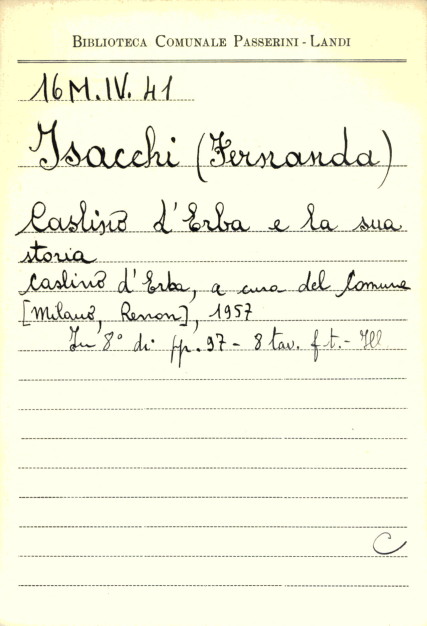 BIBLIOTECA COMUNALE PASSERINI - LANDI
16 M. IV. 41
Isacchi (Fernanda)
Caslino d'Erba e la sua
storia
Caslino d'Erba, a cura del Comune
[Milano, Renon], 1957
In 8° di pp. 97 - 8 tav. f. t. - Ill
C